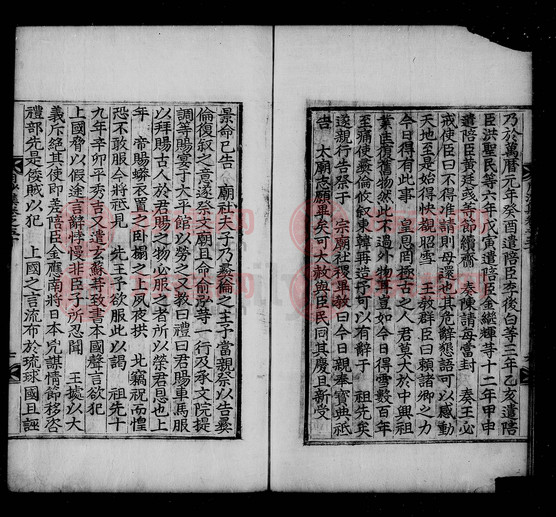 乃於萬曆元年癸酉遣陪臣李後白等三年乙亥遣陪
臣洪聖民等六年戊寅遣陪臣金繼輝等十二年甲申
遣陪臣黃廷彧等節續齎 奏陳請每當封 奏王必
戒使臣曰不得准請則毋還也其危辭懇語可以感動
天地至是始得快覩昭雪 王敎群臣曰賴諸卿之力
今日得有此事 皇恩罔極古之人君莫大於中興祖
業修復舊物然此不過外物耳豈如今日得雪數百年
至痛使彝倫攸敘東韓再造乎可以有辭于 祖先矣
遂親行告祭于 宗廟社稷畢敎曰今日親奉寶典祗
告 大廟慈願畢矣可大赦與臣民同其慶且新受
景命已告 廟社天子乃彝倫之主予當親祭以告彝
倫復敘之意遂祭文廟且命俞泓等一行及承文院提
調等賜宴于大平館以勞之又敎曰禮曰君賜車馬服
以拜賜古人於君賜之物必服之者所以榮君恩也上
年 帝賜蟒衣置之卧榻之上夙夜拱 北竊視而惶
恐不敢服今將祗見 先王予欲服此以謁 祖先十
九年辛卯平秀吉又遣玄蘇等致書本國聲言欲犯
上國脅以假途言辭悖慢非臣子所忍聞 王據以大
義斥絕其使即差陪臣金應南將日本兇謀情節移咨
禮部先是倭賊以犯 上國之言流布於琉球國且誣